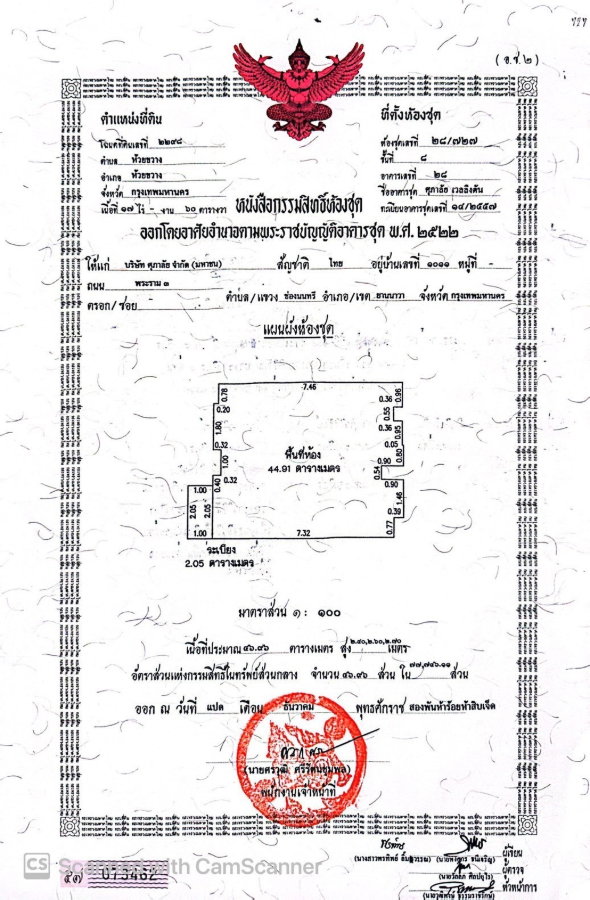 ๗๒๗
(อ.ช.๒)
ตำแหน่งที่ดิน
ที่ตั้งห้องชุด
โฉนดที่ดินเลขที่ ๒๒๙๘
ห้องชุดเลขที่ ๒๘/๗๒๗
ตำบล ห้วยขวาง
ชั้นที่ ๘
อำเภอ ห้วยขวาง
อาคารเลขที่ ๒๘
จังหวัด กรุงเทพมหานคร
ชื่ออาคารชุด ศุภาลัย เวลลิงตัน
เนื้อที่ ๑๗ ไร่ - งาน ๖๐ ตารางวา
ทะเบียนอาคารชุดเลขที่ ๑๔/๒๕๕๗
หนังสือกรรมสิทธิ์ห้องชุด
ออกโดยอาศัยอำนาจตามพระราชบัญญัติอาคารชุด พ.ศ. ๒๕๒๒
ให้แก่ บริษัท ศุภาลัย จำกัด (มหาชน) สัญชาติ ไทย อยู่บ้านเลขที่ ๑๐๑๑ หมู่ที่ -
ถนน พระราม ๓
ตรอก/ซอย - ตำบล/แขวง ช่องนนทรี อำเภอ/เขต ยานนาวา จังหวัด กรุงเทพมหานคร
แผนผังห้องชุด
7.46
0.78
0.36
0.96
0.20
0.55
1.80
0.36
0.95
0.32
0.05
0.80
1.00
0.90
พื้นที่ห้อง
44.91 ตารางเมตร
0.54
0.40
0.32
0.90
1.00
1.46
2.05
2.05
0.39
1.00
7.32
0.77
ระเบียง
2.05 ตารางเมตร
มาตราส่วน ๑ : ๑๐๐
เนื้อที่ประมาณ ๔๖.๙๖ ตารางเมตร สูง ๒.๔๐,๒.๖๐,๒.๗๐ เมตร
อัตราส่วนแห่งกรรมสิทธิ์ในทรัพย์ส่วนกลาง จำนวน ๔๖.๙๖ ส่วน ใน ๗๗,๗๔๖.๑๑ ส่วน
ออก ณ วันที่ แปด เดือน ธันวาคม พุทธศักราช สองพันห้าร้อยห้าสิบเจ็ด
(นายศราวุฒิ ศรีวัฒนชุมพล)
พนักงานเจ้าหน้าที่
ผู้เขียน
ผู้ตรวจ
หัวหน้าการ
CS Scanned with CamScanner
๕๗ 073462